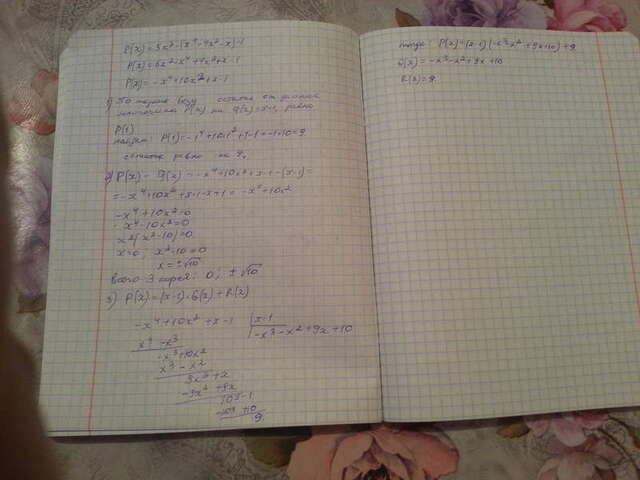 P(x) = 3x² - (x⁴ - 4x² - x) - 1
P(x) = 6x² - x⁴ + 4x² + x - 1
P(x) = -x⁴ + 10x² + x - 1
1) По теореме Безу остаток от деления
многочлена P(x) на q(x) = x-1, равно
P(1)
найдем: P(1) = -1⁴ + 10·1² + 1 - 1 = -1 + 10 = 9
остаток равно на 9,
2) P(x) - q(x) = -x⁴ + 10x² + x - 1 - (x-1) =
= -x⁴ + 10x² + x - 1 - x + 1 = -x⁴ + 10x²
-x⁴ + 10x² = 0
x⁴ - 10x² = 0
x²(x² - 10) = 0
x = 0; x² - 10 = 0
x = ±√10
всего 3 корей: 0; ±√10
3) P(x) = (x-1)·G(x) + R(x)
-x⁴ + 10x² + x - 1 | x-1
x⁴ - x³ | -x³ - x² + 9x + 10
-x³ + 10x²
x³ - x²
-9x² + 9x
10x - 1
9
тогда: P(x) = (x-1)(-x³ - x² + 9x + 10) + 9
G(x) = -x³ - x² + 9x + 10
R(x) = 9